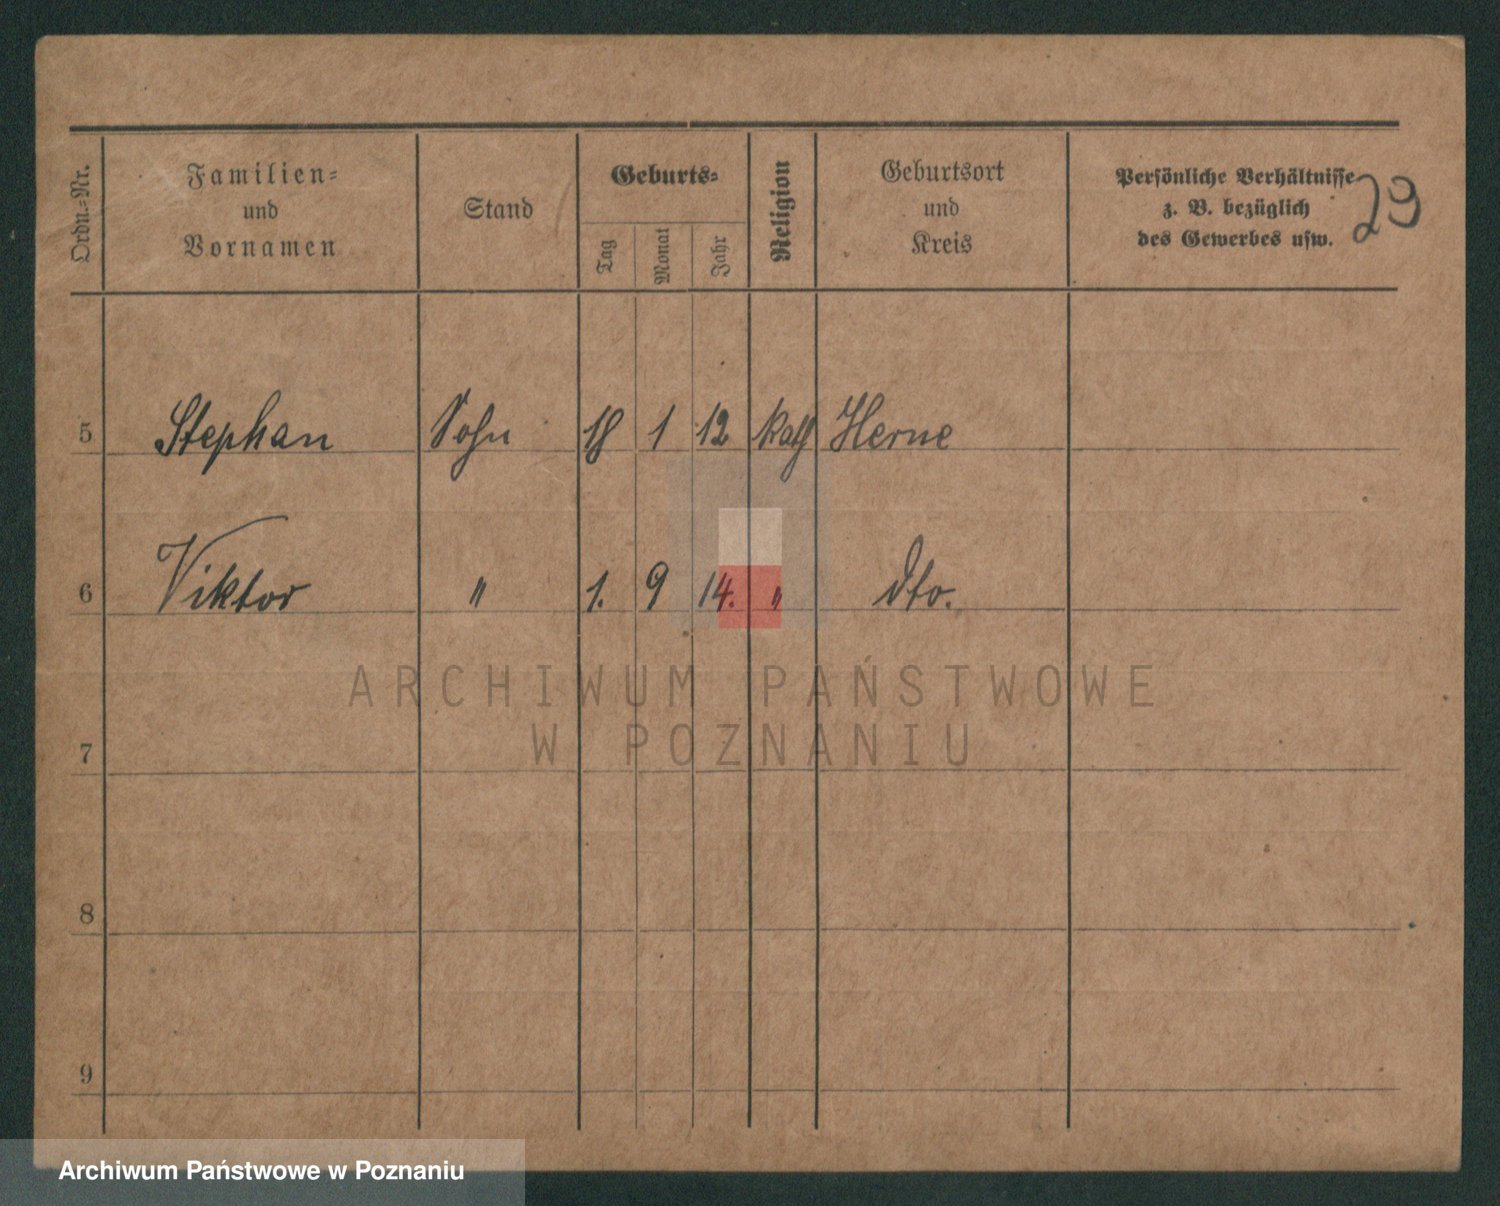 Ordn.-Nr.
Familien-
und
Vornamen
Stand
Geburts-
Tag
Monat
Jahr
Religion
Geburtsort
und
Kreis
Persönliche Verhältnisse
z. B. bezüglich
des Gewerbes usw.
29
5 Stephan Sohn 18 1 12 kath Herne
6 Viktor " 1. 9 14. " dto.
ARCHIWUM PAŃSTWOWE
W POZNANIU
7
8
9
Archiwum Państwowe w Poznaniu